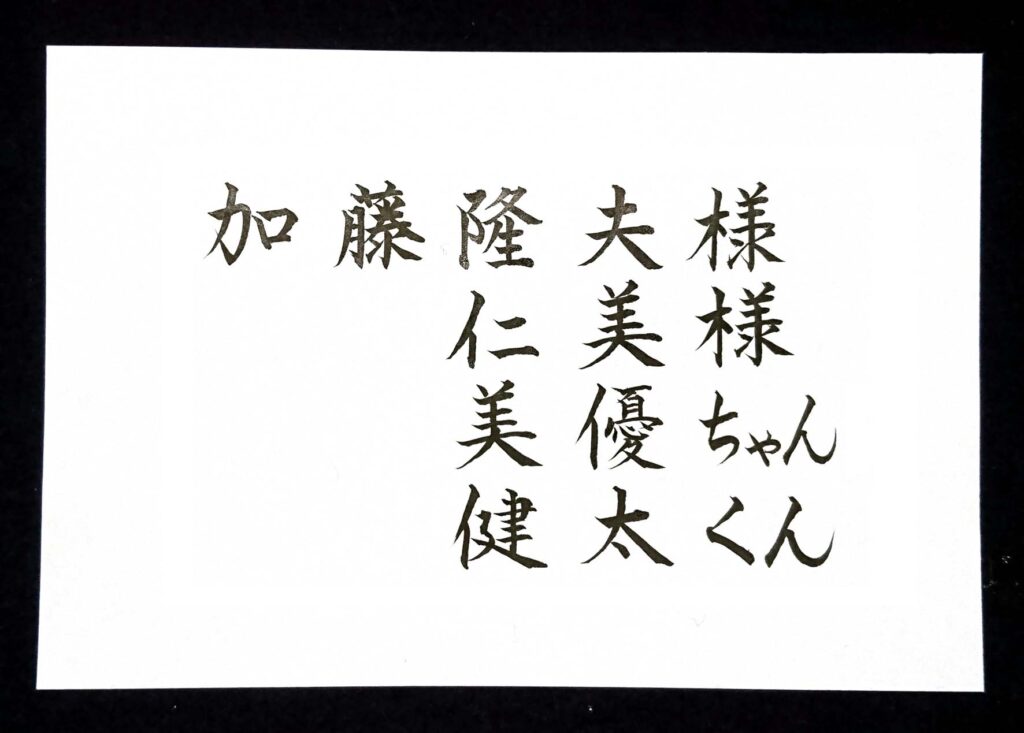 加藤隆夫様
仁美様
美優ちゃん
健太くん